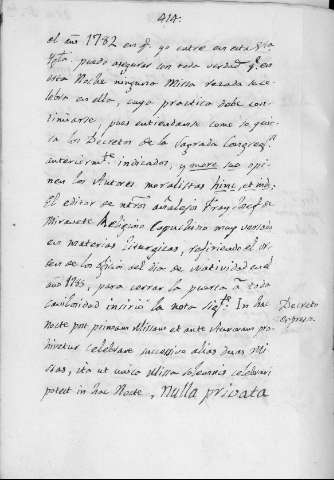 414.
el año 1782 en q.e yo entré en esta S.ta
Ygla. puedo asegurar con toda verdad q.e en
esta Noche ninguna Missa rezada se ce-
lebra en ella, cuya practica debe con-
tinuarse, pues entiendanse como se quie-
ra los Decretos de la Sagrada Congreg.n
anteriorm.te indicados, y more suo opi-
nen los Autores moralistas hinc, et inde
El editor de ntros añalejos Fray Josef de
Miravete Religioso Capuchino muy versado
en materias liturgicas, refiriendo el or-
den de los oficios del dia de Natividad en el
año 1785, para cerrar la puerta á toda
cavilosidad insirió la nota sig.te In hac
Nocte post primam Missam et ante Auroram pro-
hivetur celebrare successive alias duas Mi-
ssas, ita ut unica Missa solemnis celebrari
potest in hac Nocte, nulla privata
Decreto
expreso.